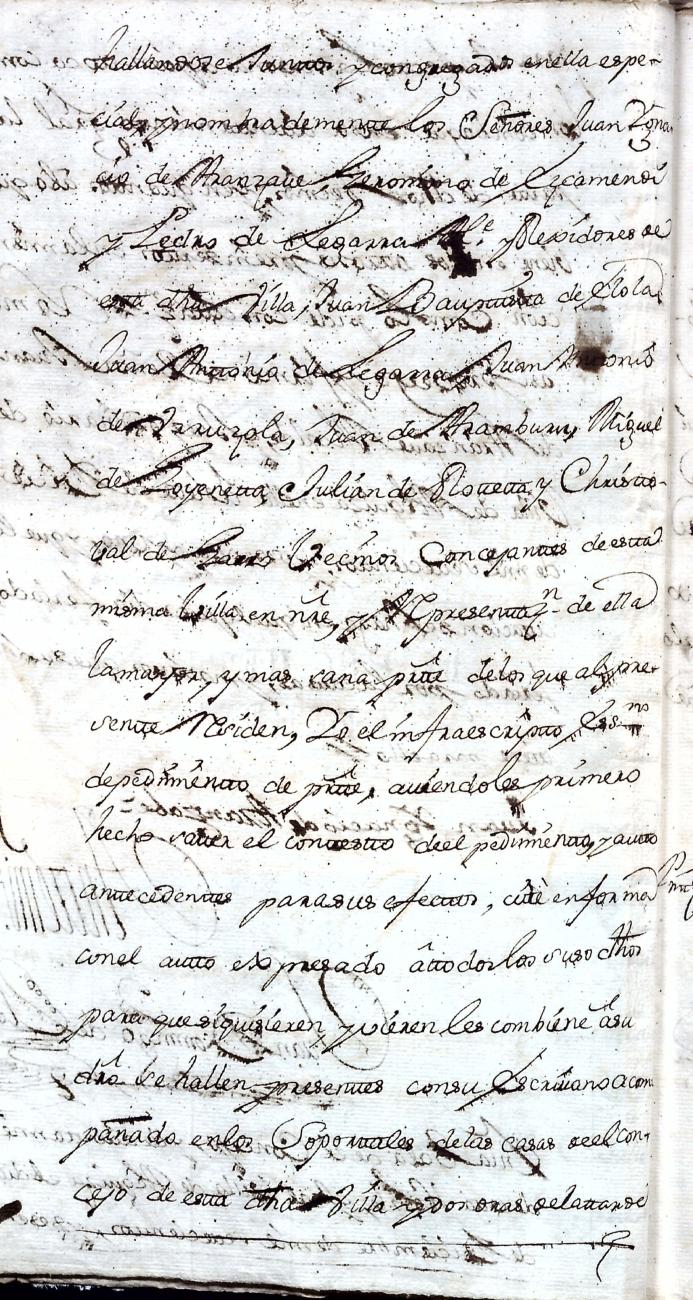 hallandose Junttos y congregados en ella espe-
cial, y nombrademente los Señores Juan Ygna
cio de Aranzave Geronimo de Lizamendi
y Pedro de Legarra Alc.e y Rexidores de
esta dha Villa, Juan Bauptista de Olola
Juan Antonio de Legarra Juan Antonio
de Vruzola, Juan de Aramburu, Miguel
de Loyenetta, Julian de Rovetta y Christto-
val de Vecinos Concejantes de esta
misma Villa en nre, y Representtaz.n de ella
la mayor, y mas sana partte delos que al pre-
sentte Residen, Yo el infraescripto Ess.no
depedimientto de partte, aviendoles primero
hecho saver el conttestto deel pedimientto, y autto
anttecedenttes parasus efecttos, cité en forma
conel autto expresado â ttodos los suso dhos
para que si quisieren, y vieren les combiene â su
dro se hallen presenttes consu Escrivano acom
pañado enlos Soporttales delas casas deel con-
cejo, de esta dha Villa y dos oras dela ttarde